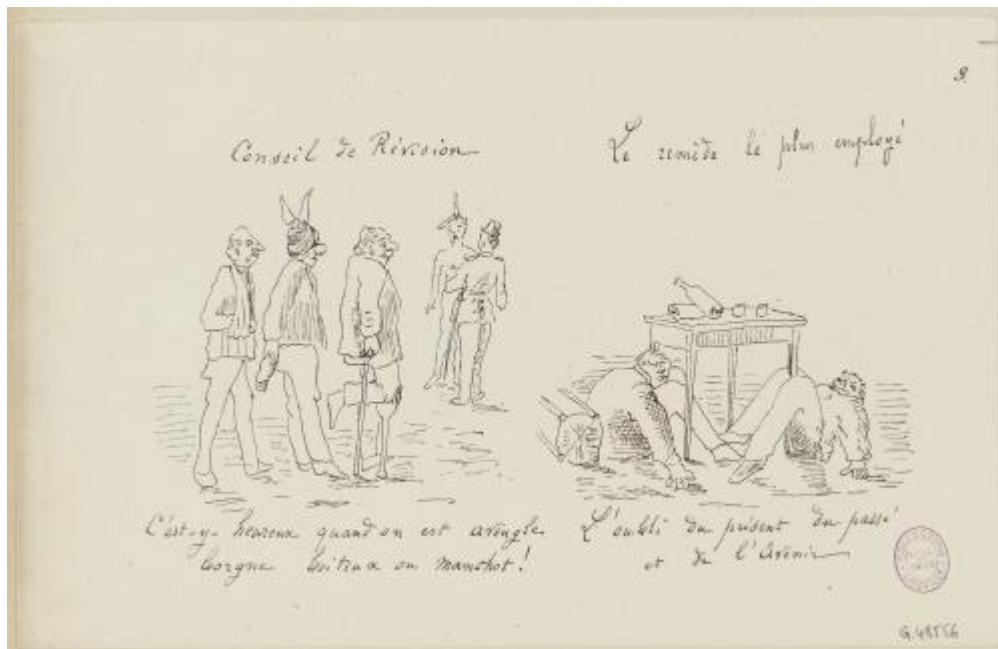 3.
Conseil de Révision
C'est-y- heureux quand on est aveugle
borgne boiteux ou manchot !
Le remède le plus employé
L'oubli du présent du passé
et de l'Avenir
G.48556